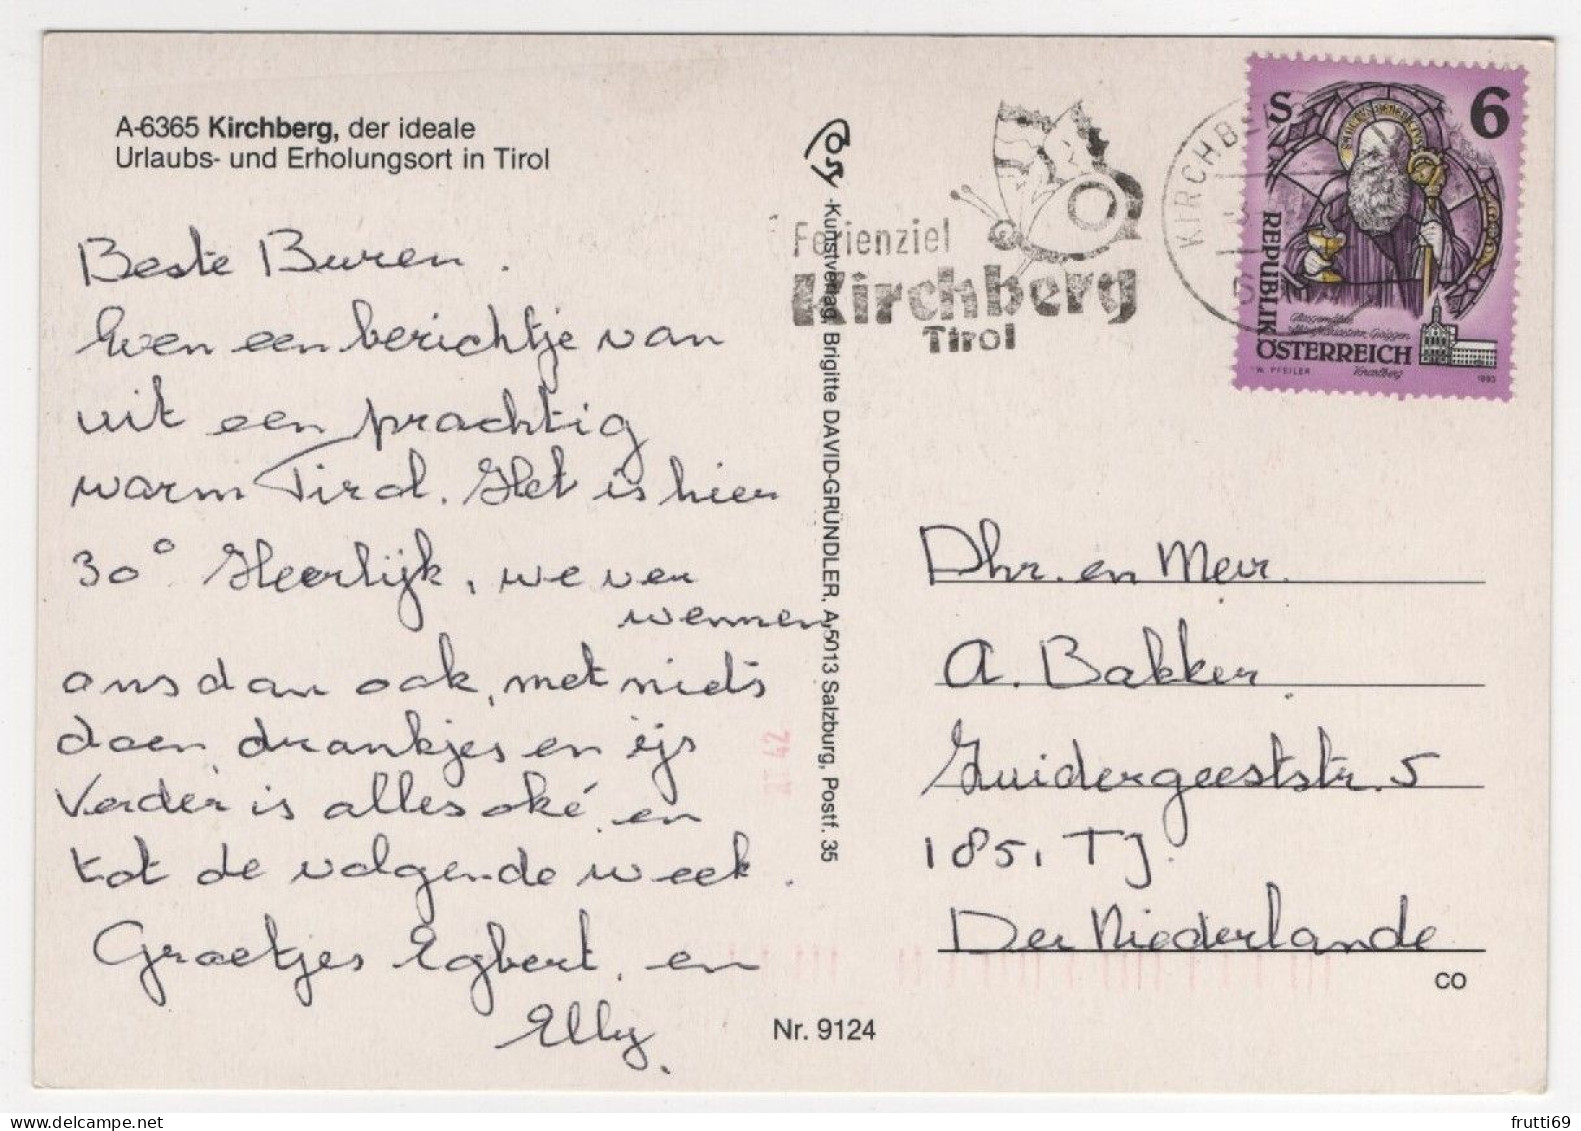 A-6365 Kirchberg, der ideale
Urlaubs- und Erholungsort in Tirol
Beste Buren.
Even een berichtje van
uit een prachtig
warm Tirol. Het is hier
30° Heerlijk, we ver
wennen
ons dan ook, met niets
doen, drankjes en ijs
Verder is alles oké en
tot de volgende week.
Groetjes Egbert. en
Elly.
Posy
-Kunstverlag, Brigitte DAVID-GRÜNDLER, A-5013 Salzburg, Postf. 35
Nr. 9124
Ferienziel
Kirchberg
Tirol
KIRCHBE
S 6
REPUBLIK
ÖSTERREICH
W. PFEILER
Vorarlberg
1993
AT 42
Dhr. en Mevr.
A. Bakker
Zuidergeeststr. 5
1851 TJ.
Der Niederlande
CO
frutti69